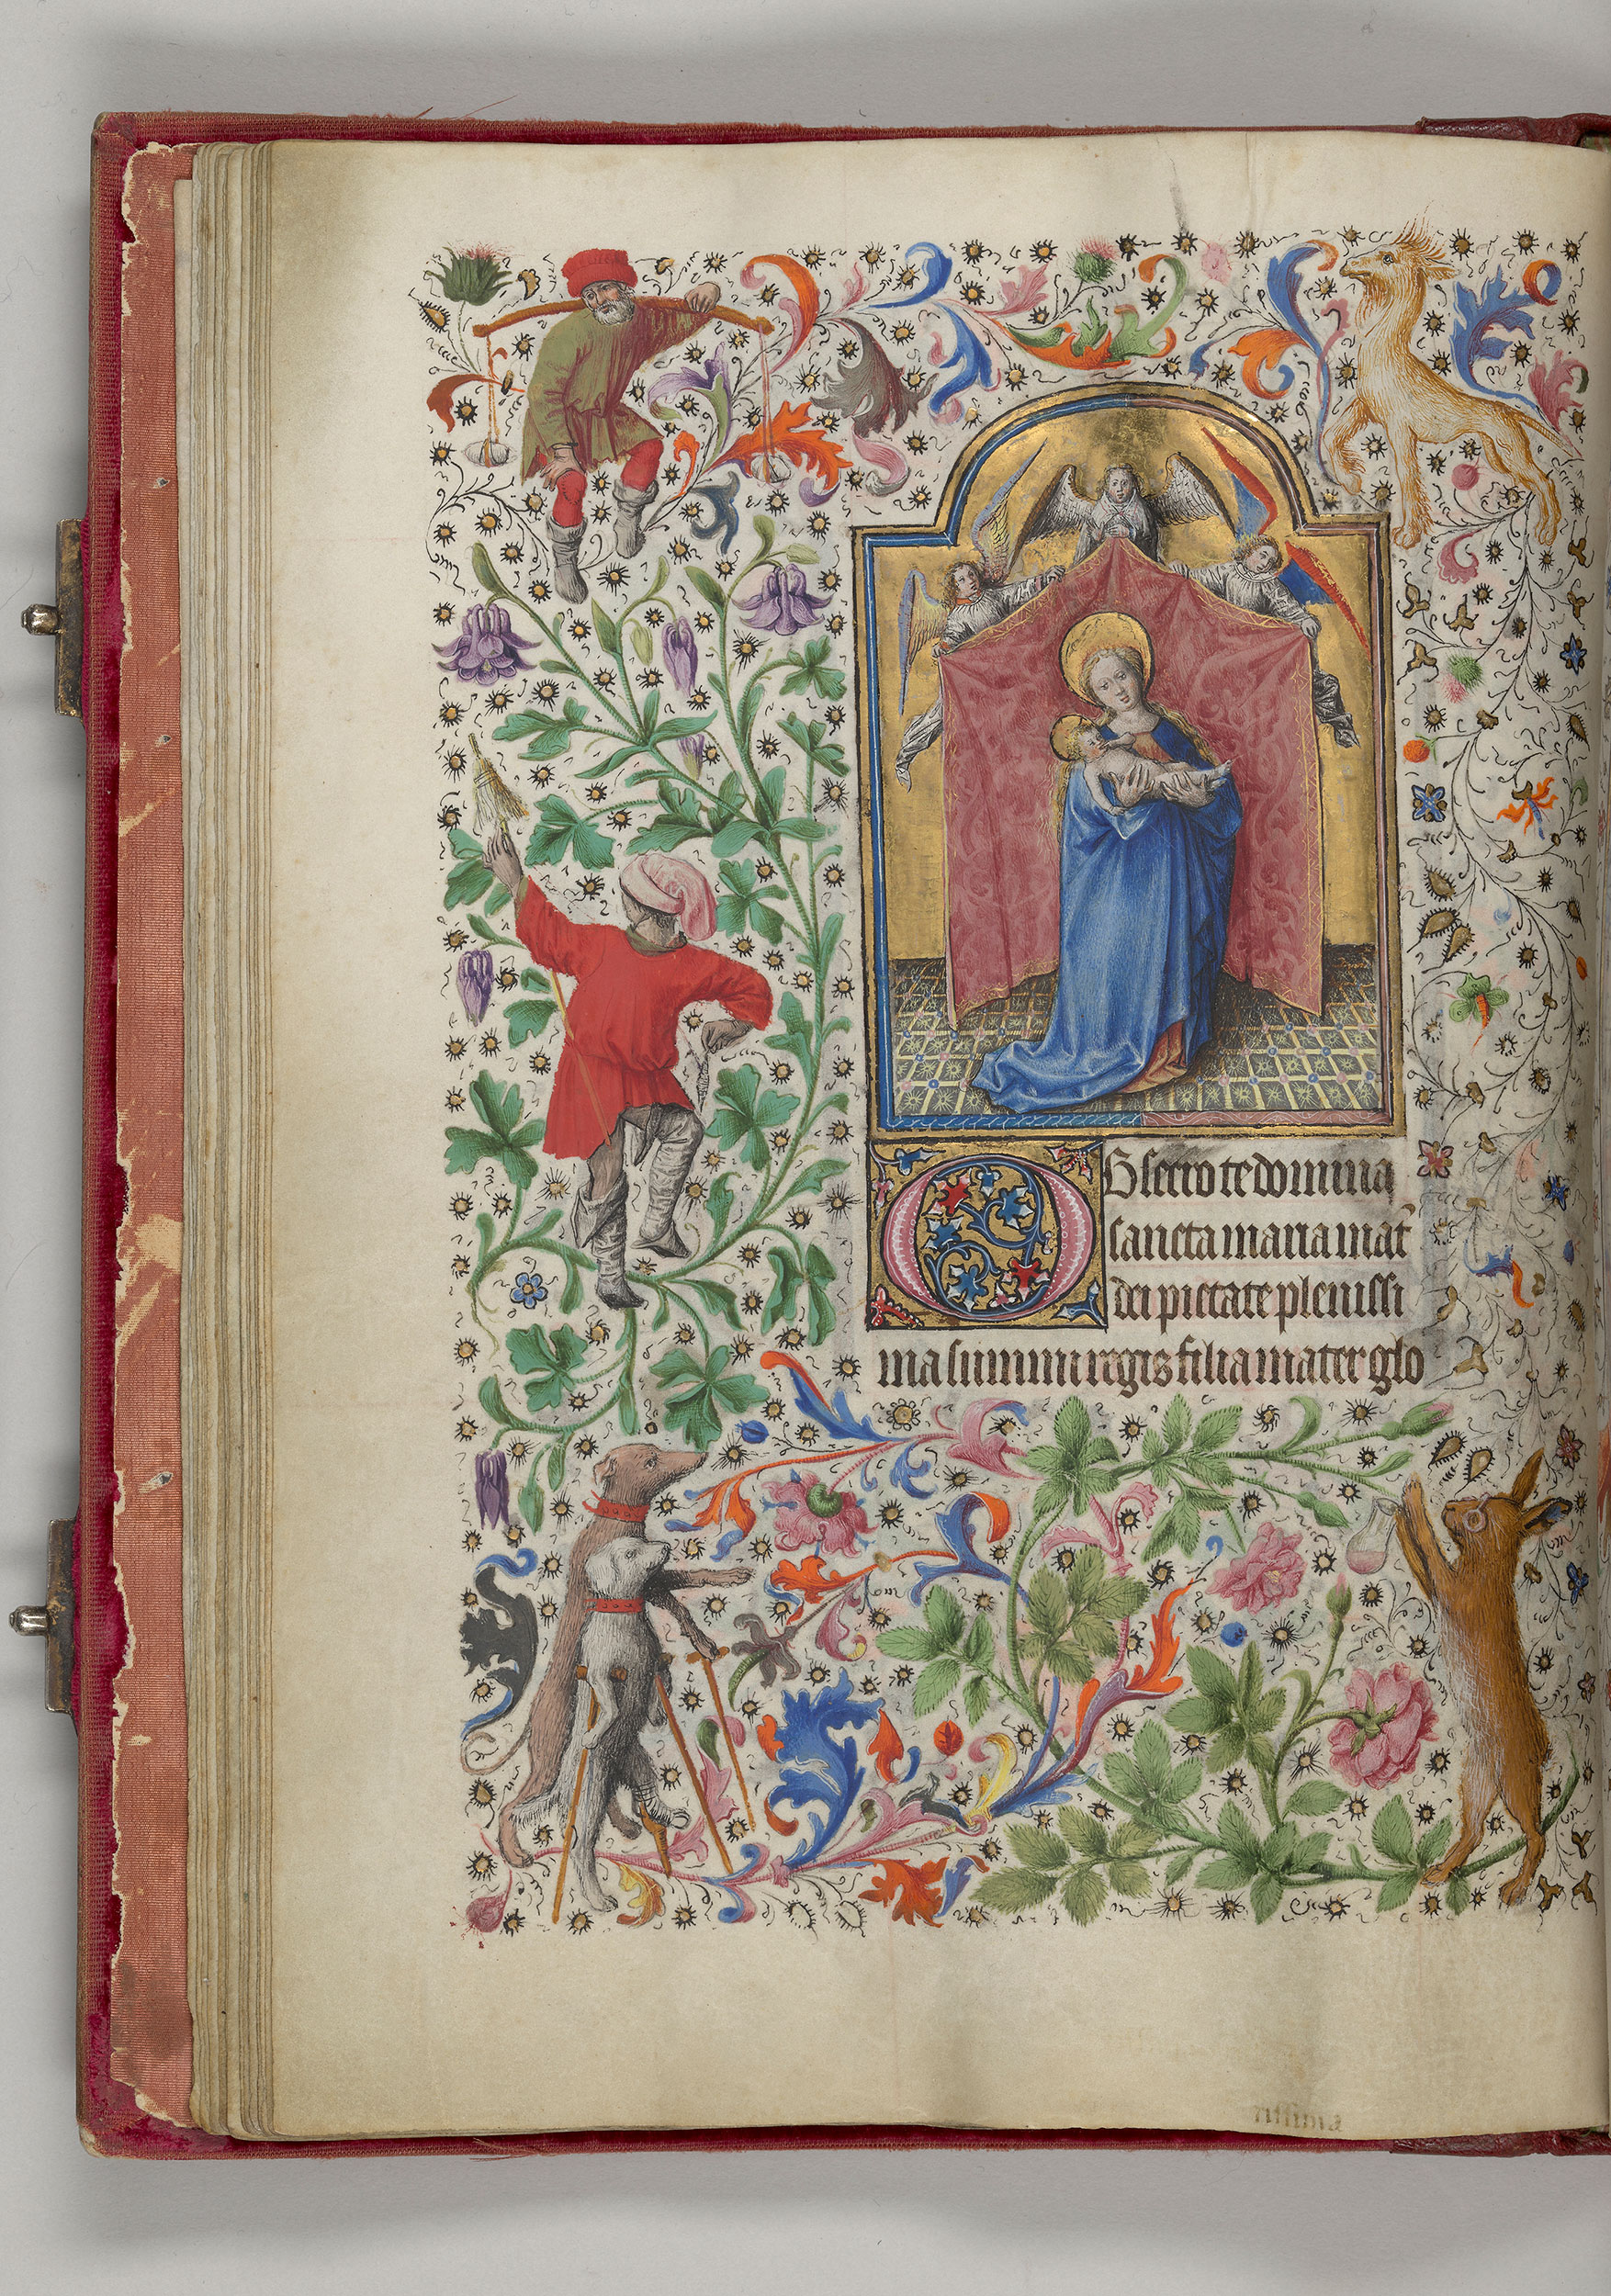 OBsecro te domina
sancta maria mat̄
dei pietate plenissi
ma summi regis filia mater glo
rissima